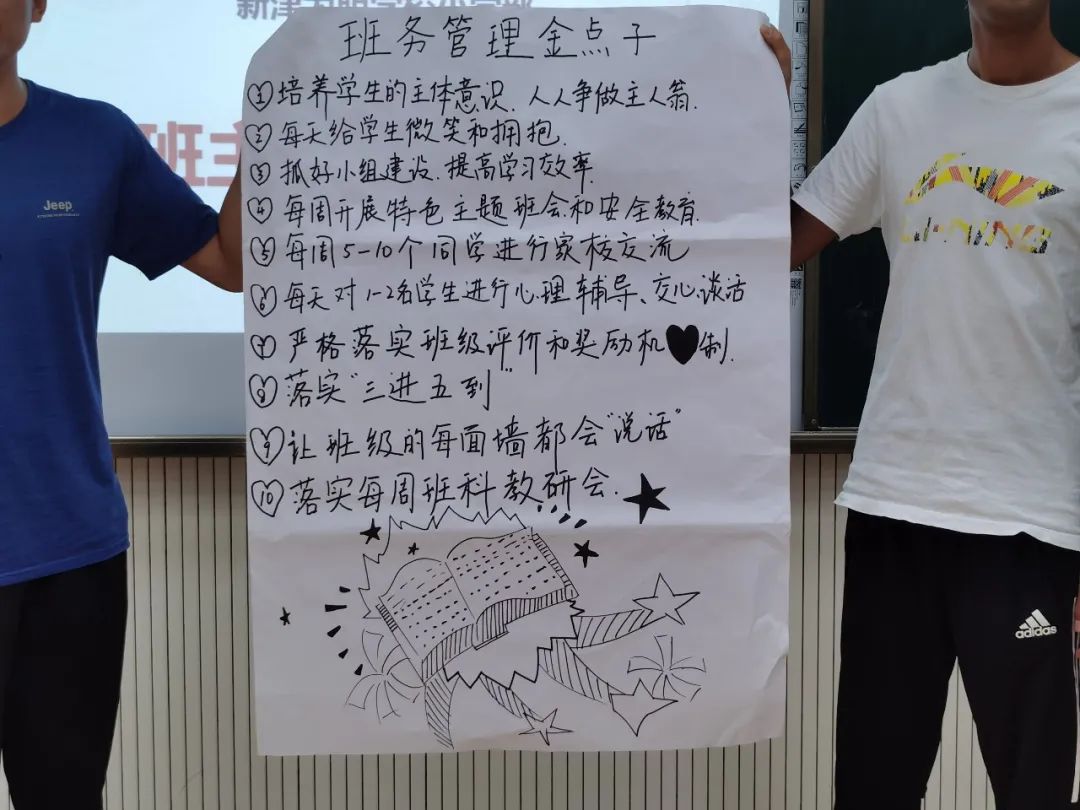 班务管理金点子
①培养学生的主体意识、人人争做主人翁.
②每天给学生微笑和拥抱.
③抓好小组建设.提高学习效率.
④每周开展特色主题班会和安全教育.
⑤每周5-10个同学进行家校交流
⑥每天对1-2名学生进行心理辅导、交心谈话
⑦严格落实班级评价和奖励机制.
⑧落实"三进五到"
⑨让班级的每面墙都会"说话"
⑩落实每周班科教研会.
班主
Jeep
LI-NING
adidas